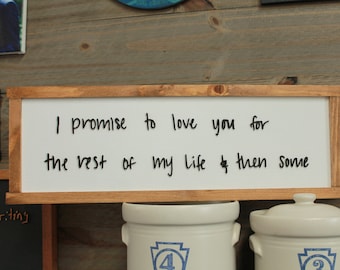 I promise to love you for
the rest of my life & then some
4
2